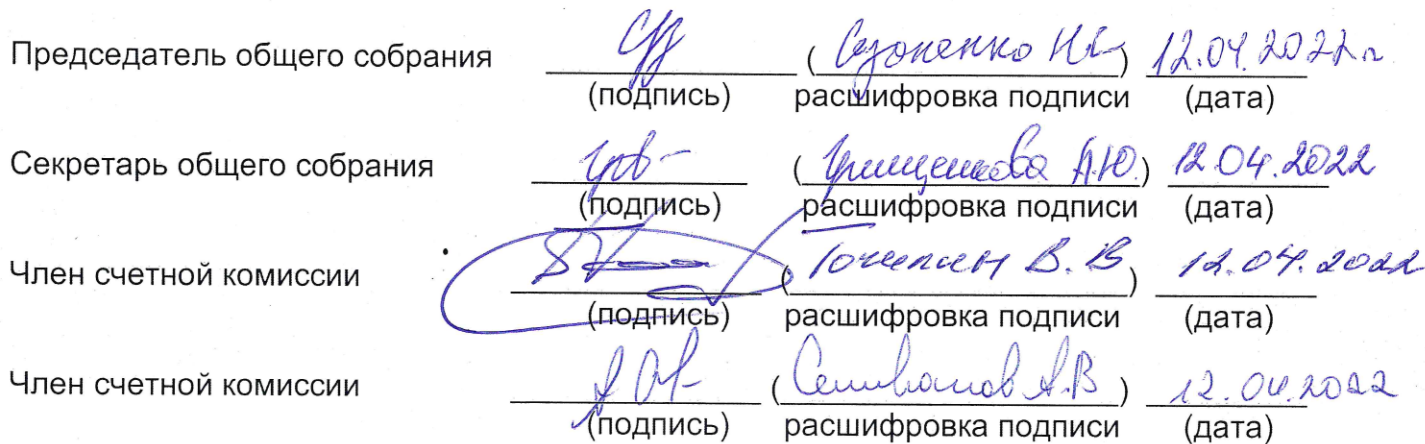 Председатель общего собрания (Сазоненко Н.С.) 12.04.2022 г
(подпись) расшифровка подписи (дата)
Секретарь общего собрания (Грищенкова А.Ю.) 12.04.2022
(подпись) расшифровка подписи (дата)
Член счетной комиссии ( В.В.) 12.04.2022
(подпись) расшифровка подписи (дата)
Член счетной комиссии (Селиванов А.В) 12.04.2022
(подпись) расшифровка подписи (дата)